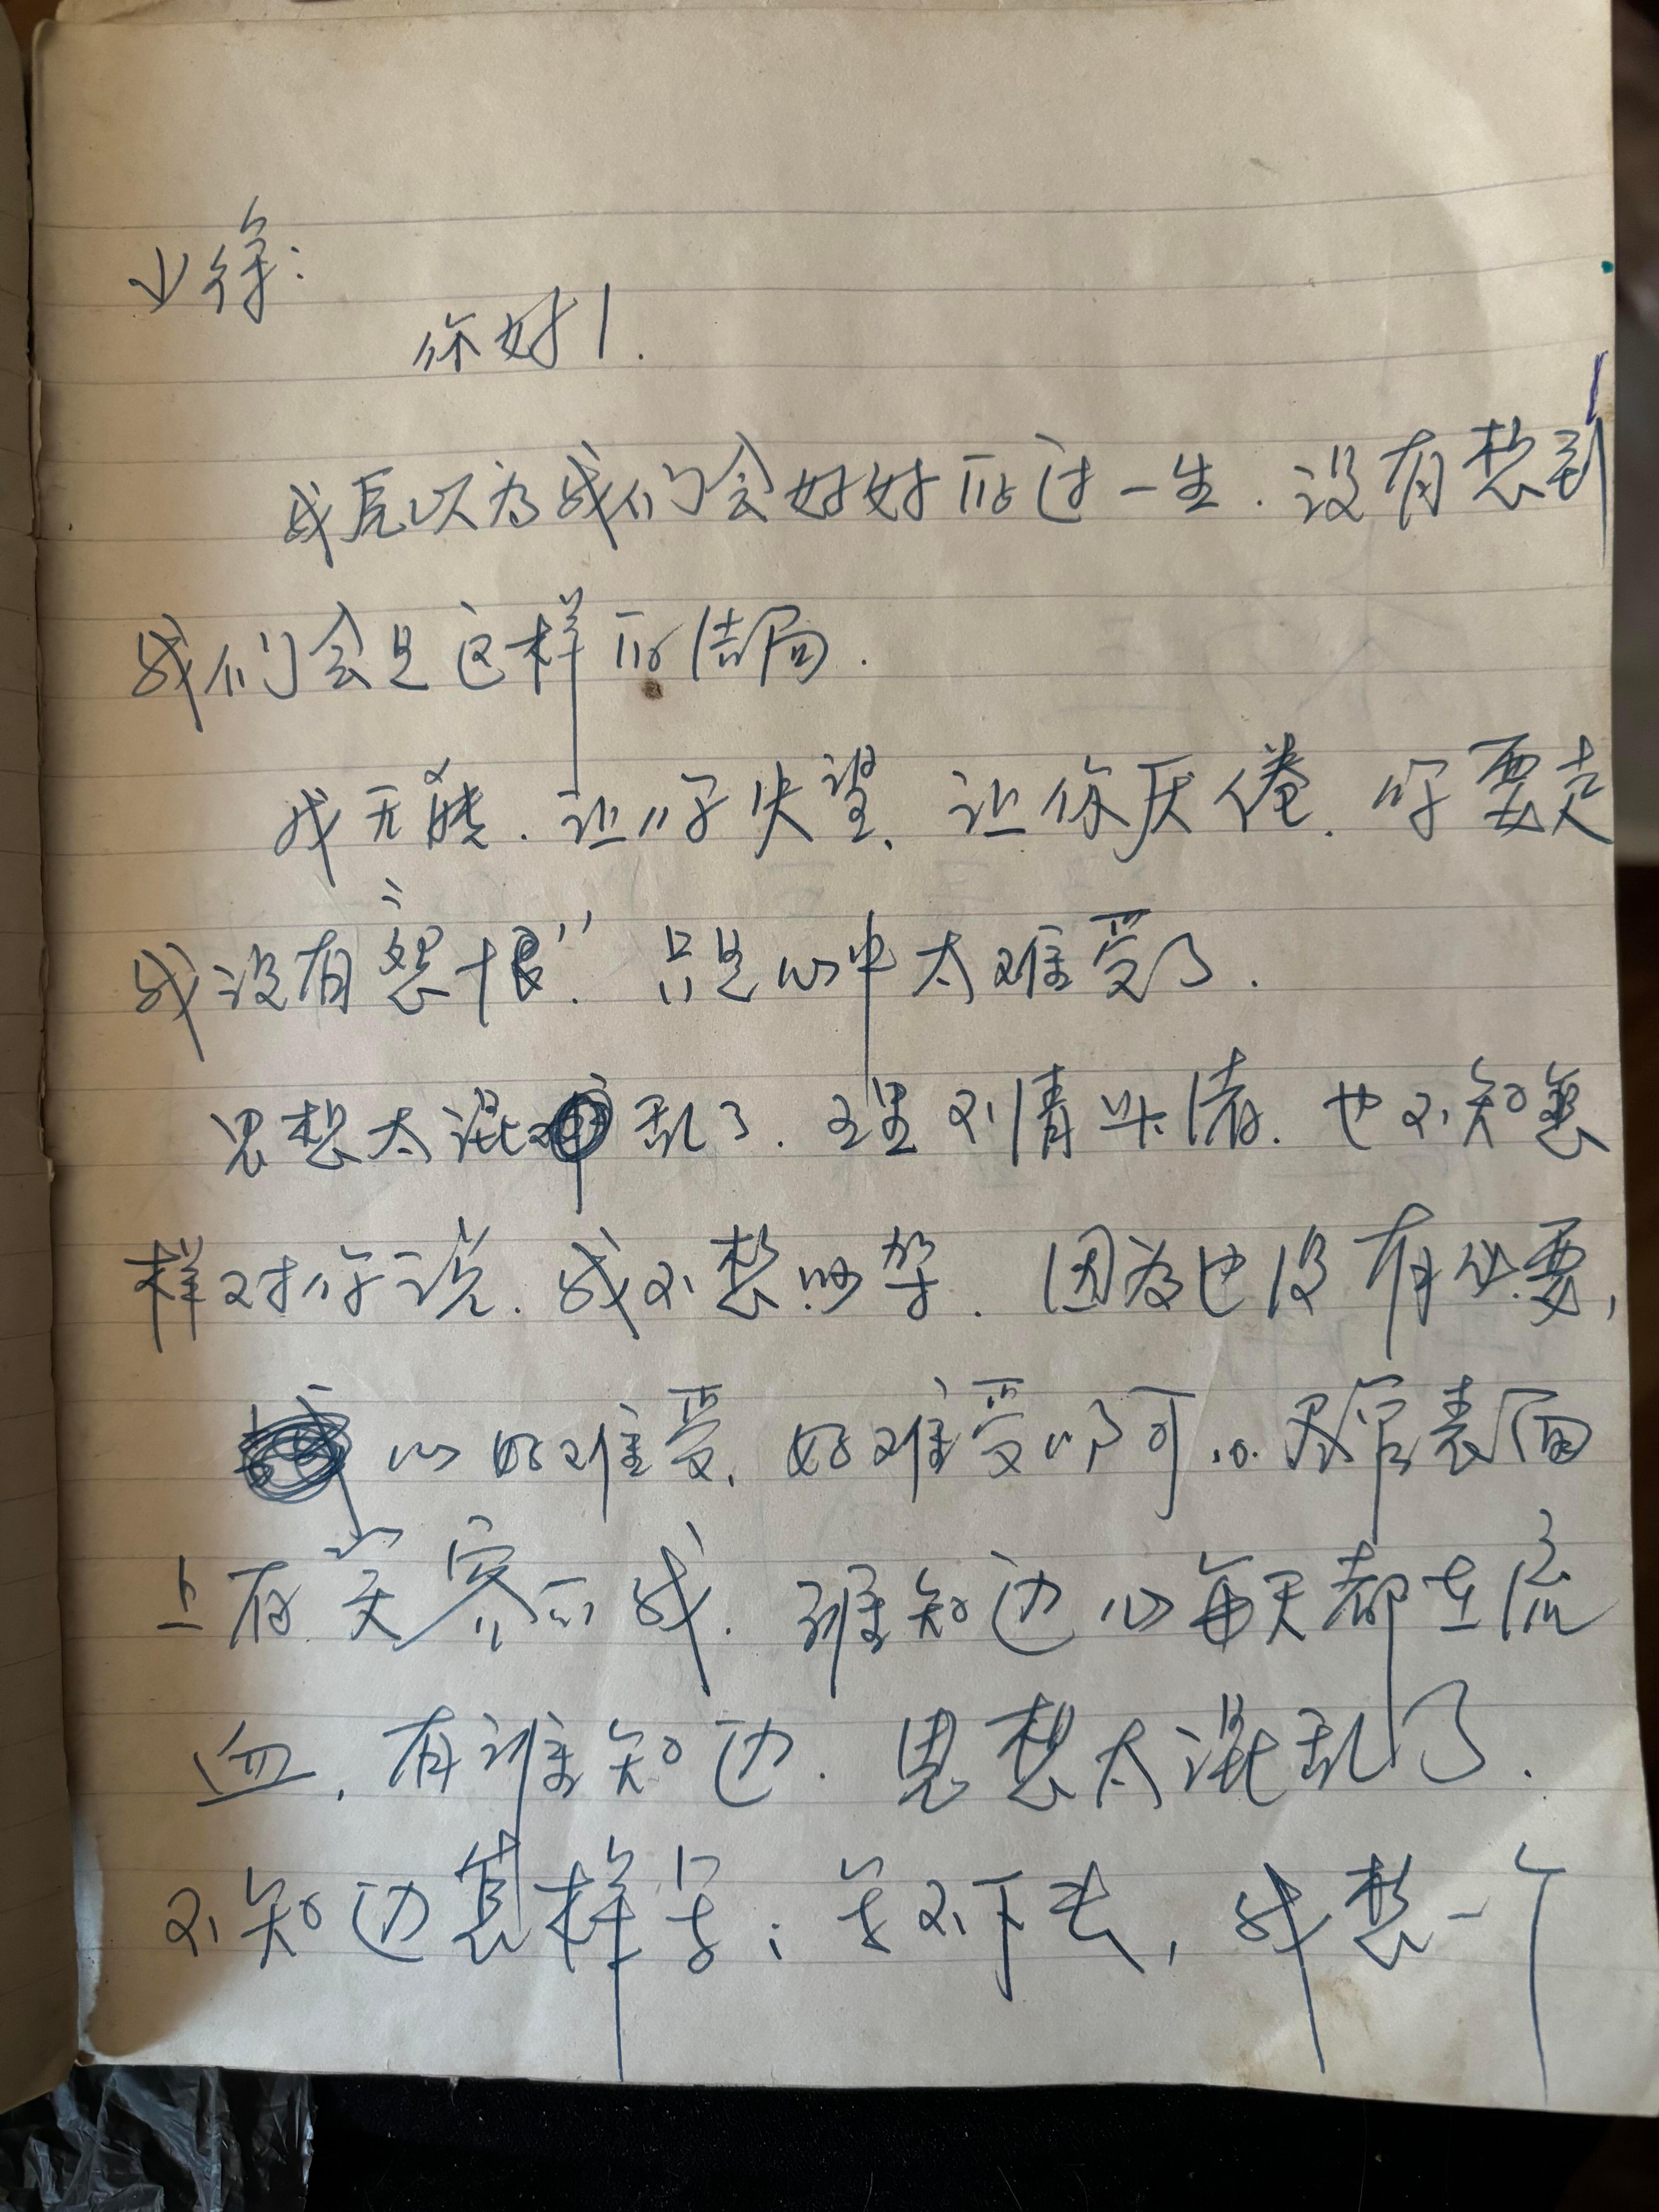 小徐:
你好!
我原以为我们会好好的过一生.没有想到
我们会是这样的结局.
我无能.让你失望、让你厌倦.你要走
我没有怨恨".只是心中太难受了.
思想太混乱了.理不情头绪.也不知怎
样对你说.我不想吵架.因为也没有必要,
心好难受.好难受的可..尽管表面
上有笑容的我.谁知边心每天都在流
血.有谁知边.思想太混乱了.
不知边怎样写;写不下去,我想一个